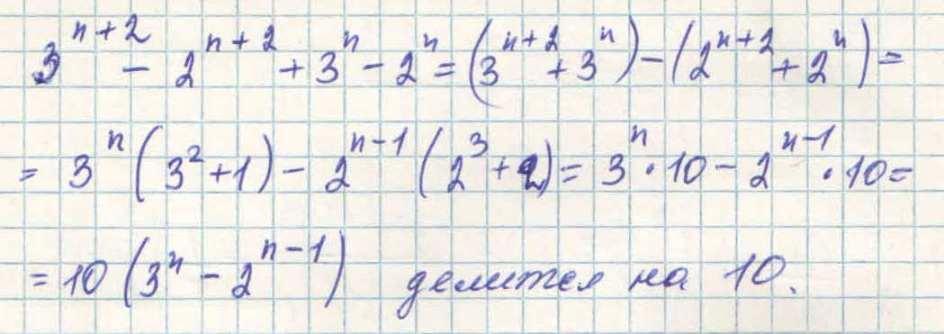 3^{n+2} - 2^{n+2} + 3^n - 2^n = (3^{n+2} + 3^n) - (2^{n+2} + 2^n) =
= 3^n (3^2 + 1) - 2^{n-1} (2^3 + 2) = 3^n · 10 - 2^{n-1} · 10 =
= 10 (3^n - 2^{n-1}) делится на 10.